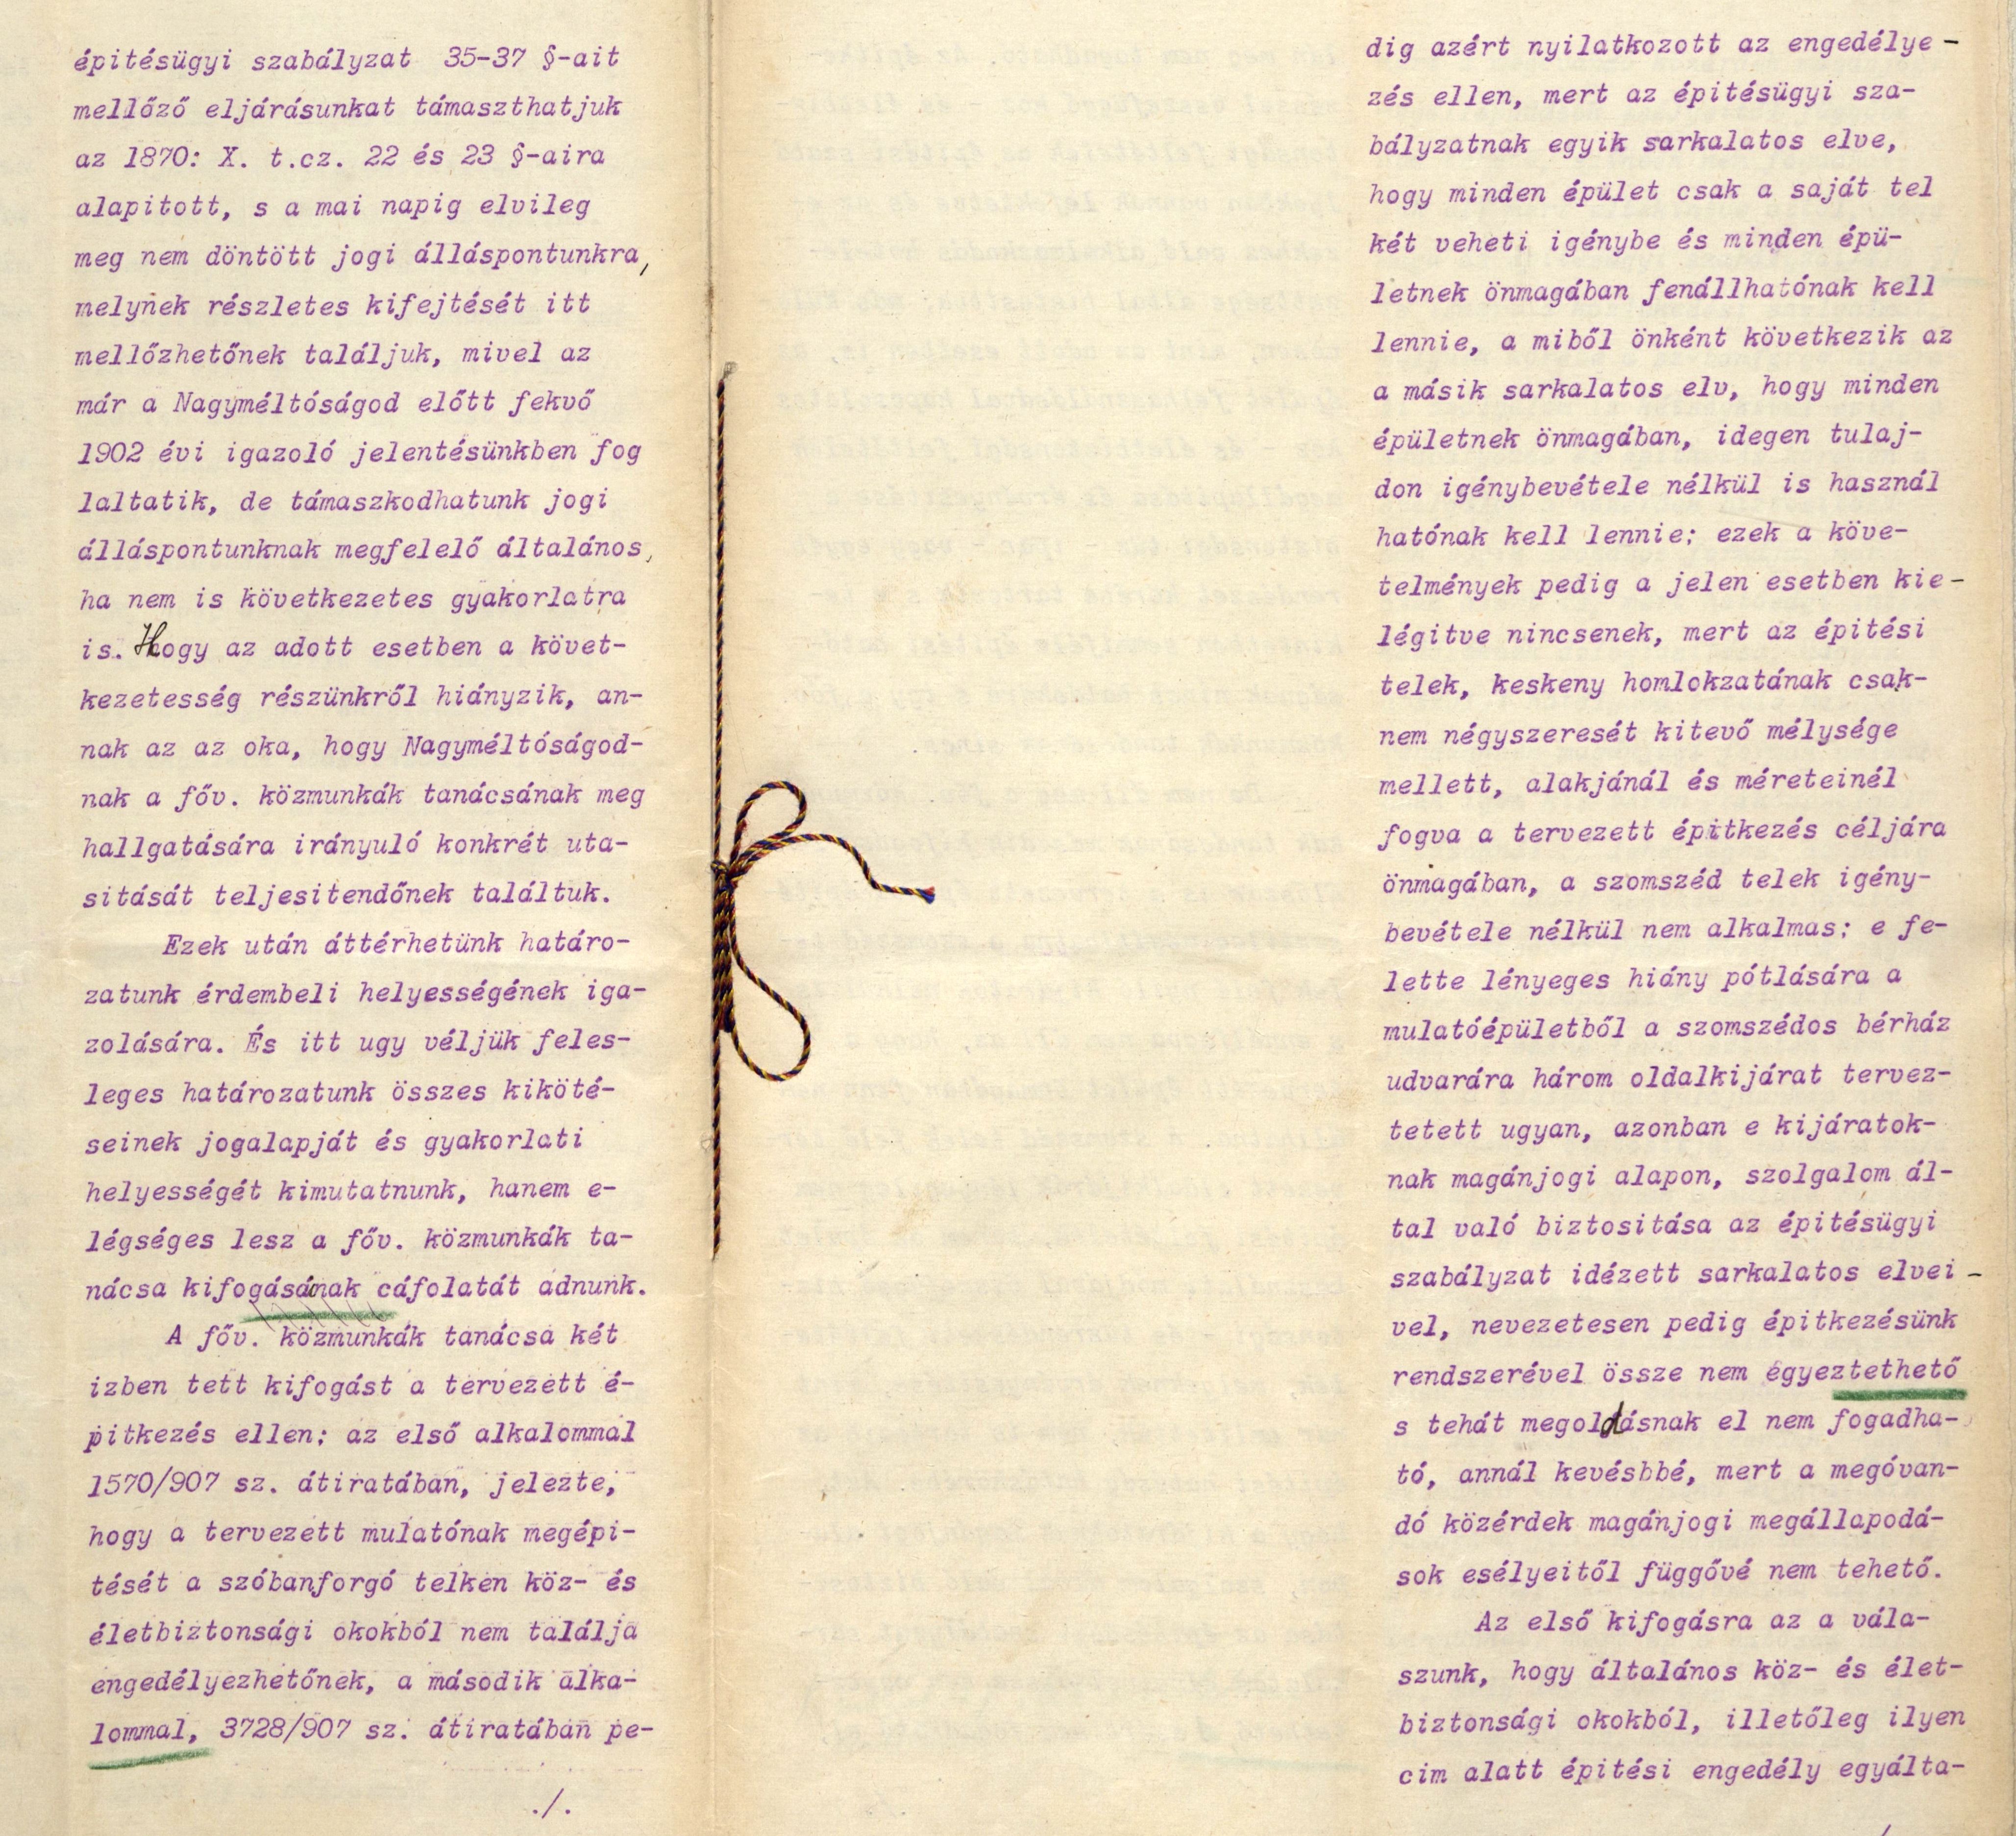 épitésügyi szabályzat 35-37 §-ait
mellőző eljárásunkat támaszthatjuk
az 1870: X. t.cz. 22 és 23 §-aira
alapitott, s a mai napig elvileg
meg nem döntött jogi álláspontunkra,
melynek részletes kifejtését itt
mellőzhetőnek találjuk, mivel az
már a Nagyméltóságod előtt fekvő
1902 évi igazoló jelentésünkben fog
laltatik, de támaszkodhatunk jogi
álláspontunknak megfelelő általános,
ha nem is következetes gyakorlatra
is. Hogy az adott esetben a követ-
kezetesség részünkről hiányzik, an-
nak az az oka, hogy Nagyméltóságod-
nak a főv. közmunkák tanácsának meg
hallgatására irányuló konkrét uta-
sitását teljesitendőnek találtuk.
Ezek után áttérhetünk határo-
zatunk érdembeli helyességének iga-
zolására. És itt ugy véljük feles-
leges határozatunk összes kiköté-
seinek jogalapját és gyakorlati
helyességét kimutatnunk, hanem e-
légséges lesz a főv. közmunkák ta-
nácsa kifogásának cáfolatát adnunk.
A főv. közmunkák tanácsa két
izben tett kifogást a tervezett é-
pitkezés ellen; az első alkalommal
1570/907 sz. átiratában, jelezte,
hogy a tervezett mulatónak megépi-
tését a szóbanforgó telken köz- és
életbiztonsági okokból nem találja
engedélyezhetőnek, a második alka-
lommal, 3728/907 sz. átiratában pe-
./.
dig azért nyilatkozott az engedélye-
zés ellen, mert az épitésügyi sza-
bályzatnak egyik sarkalatos elve,
hogy minden épület csak a saját tel
két veheti igénybe és minden épü-
letnek önmagában fenállhatónak kell
lennie, a miből önként következik az
a másik sarkalatos elv, hogy minden
épületnek önmagában, idegen tulaj-
don igénybevétele nélkül is használ
hatónak kell lennie; ezek a köve-
telmények pedig a jelen esetben kie-
légitve nincsenek, mert az épitési
telek, keskeny homlokzatának csak-
nem négyszeresét kitevő mélysége
mellett, alakjánál és méreteinél
fogva a tervezett épitkezés céljára
önmagában, a szomszéd telek igény-
bevétele nélkül nem alkalmas; e fe-
lette lényeges hiány pótlására a
mulatóépületből a szomszédos bérház
udvarára három oldalkijárat tervez-
tetett ugyan, azonban e kijáratok-
nak magánjogi alapon, szolgalom ál-
tal való biztositása az épitésügyi
szabályzat idézett sarkalatos elvei-
vel, nevezetesen pedig épitkezésünk
rendszerével össze nem egyeztethető
s tehát megoldásnak el nem fogadha-
tó, annál kevésbbé, mert a megóvan-
dó közérdek magánjogi megállapodá-
sok esélyeitől függővé nem tehető.
Az első kifogásra az a vála-
szunk, hogy általános köz- és élet-
biztonsági okokból, illetőleg ilyen
cim alatt épitési engedély egyálta-